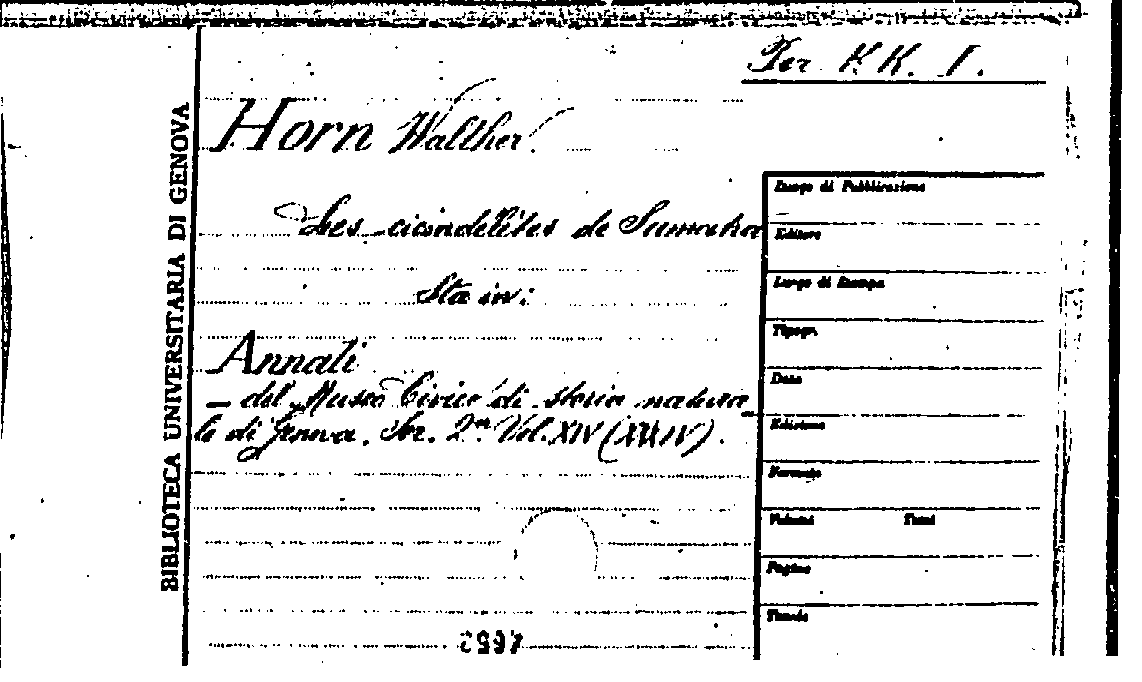 Per. KK. I.
Horn Walther
Les cicindélètes de Sumatra
Sta in:
Annali
- del Museo Civico di storia natura-
le di Genova. Ser. 2ª Vol. XIV (XXXIV).
BIBLIOTECA UNIVERSITARIA DI GENOVA
Luogo di Pubblicazione
Editore
Luogo di Stampa
Tipogr.
Data
Edizione
Formato
Volumi Tomi
Pagine
Tavole